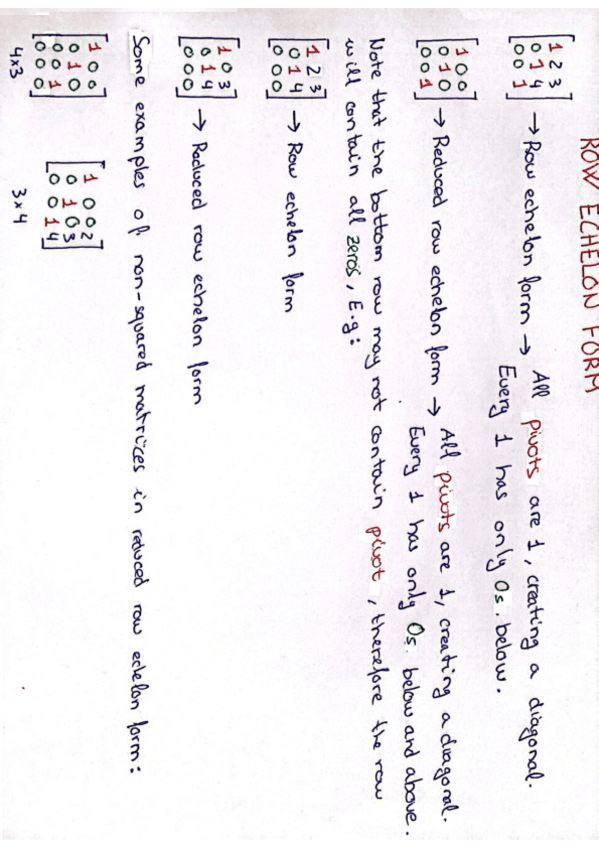 ROW ECHELON FORM
1 2 3
0 1 4
0 0 1
→ Row echelon form → All pivots are 1, creating a diagonal.
Every 1 has only 0s. below.
1 0 0
0 1 0
0 0 1
→ Reduced row echelon form → All pivots are 1, creating a diagonal.
Every 1 has only 0s. below and above.
Note that the bottom row may not contain pivot, therefore the row
will contain all zeros, E.g:
1 2 3
0 1 4
0 0 0
→ Row echelon form
1 0 3
0 1 4
0 0 0
→ Reduced row echelon form
Some examples of non-squared matrices in reduced row echelon form:
1 0 0
0 1 0
0 0 1
0 0 0
4x3
1 0 0 2
0 1 0 3
0 0 1 4
3x4